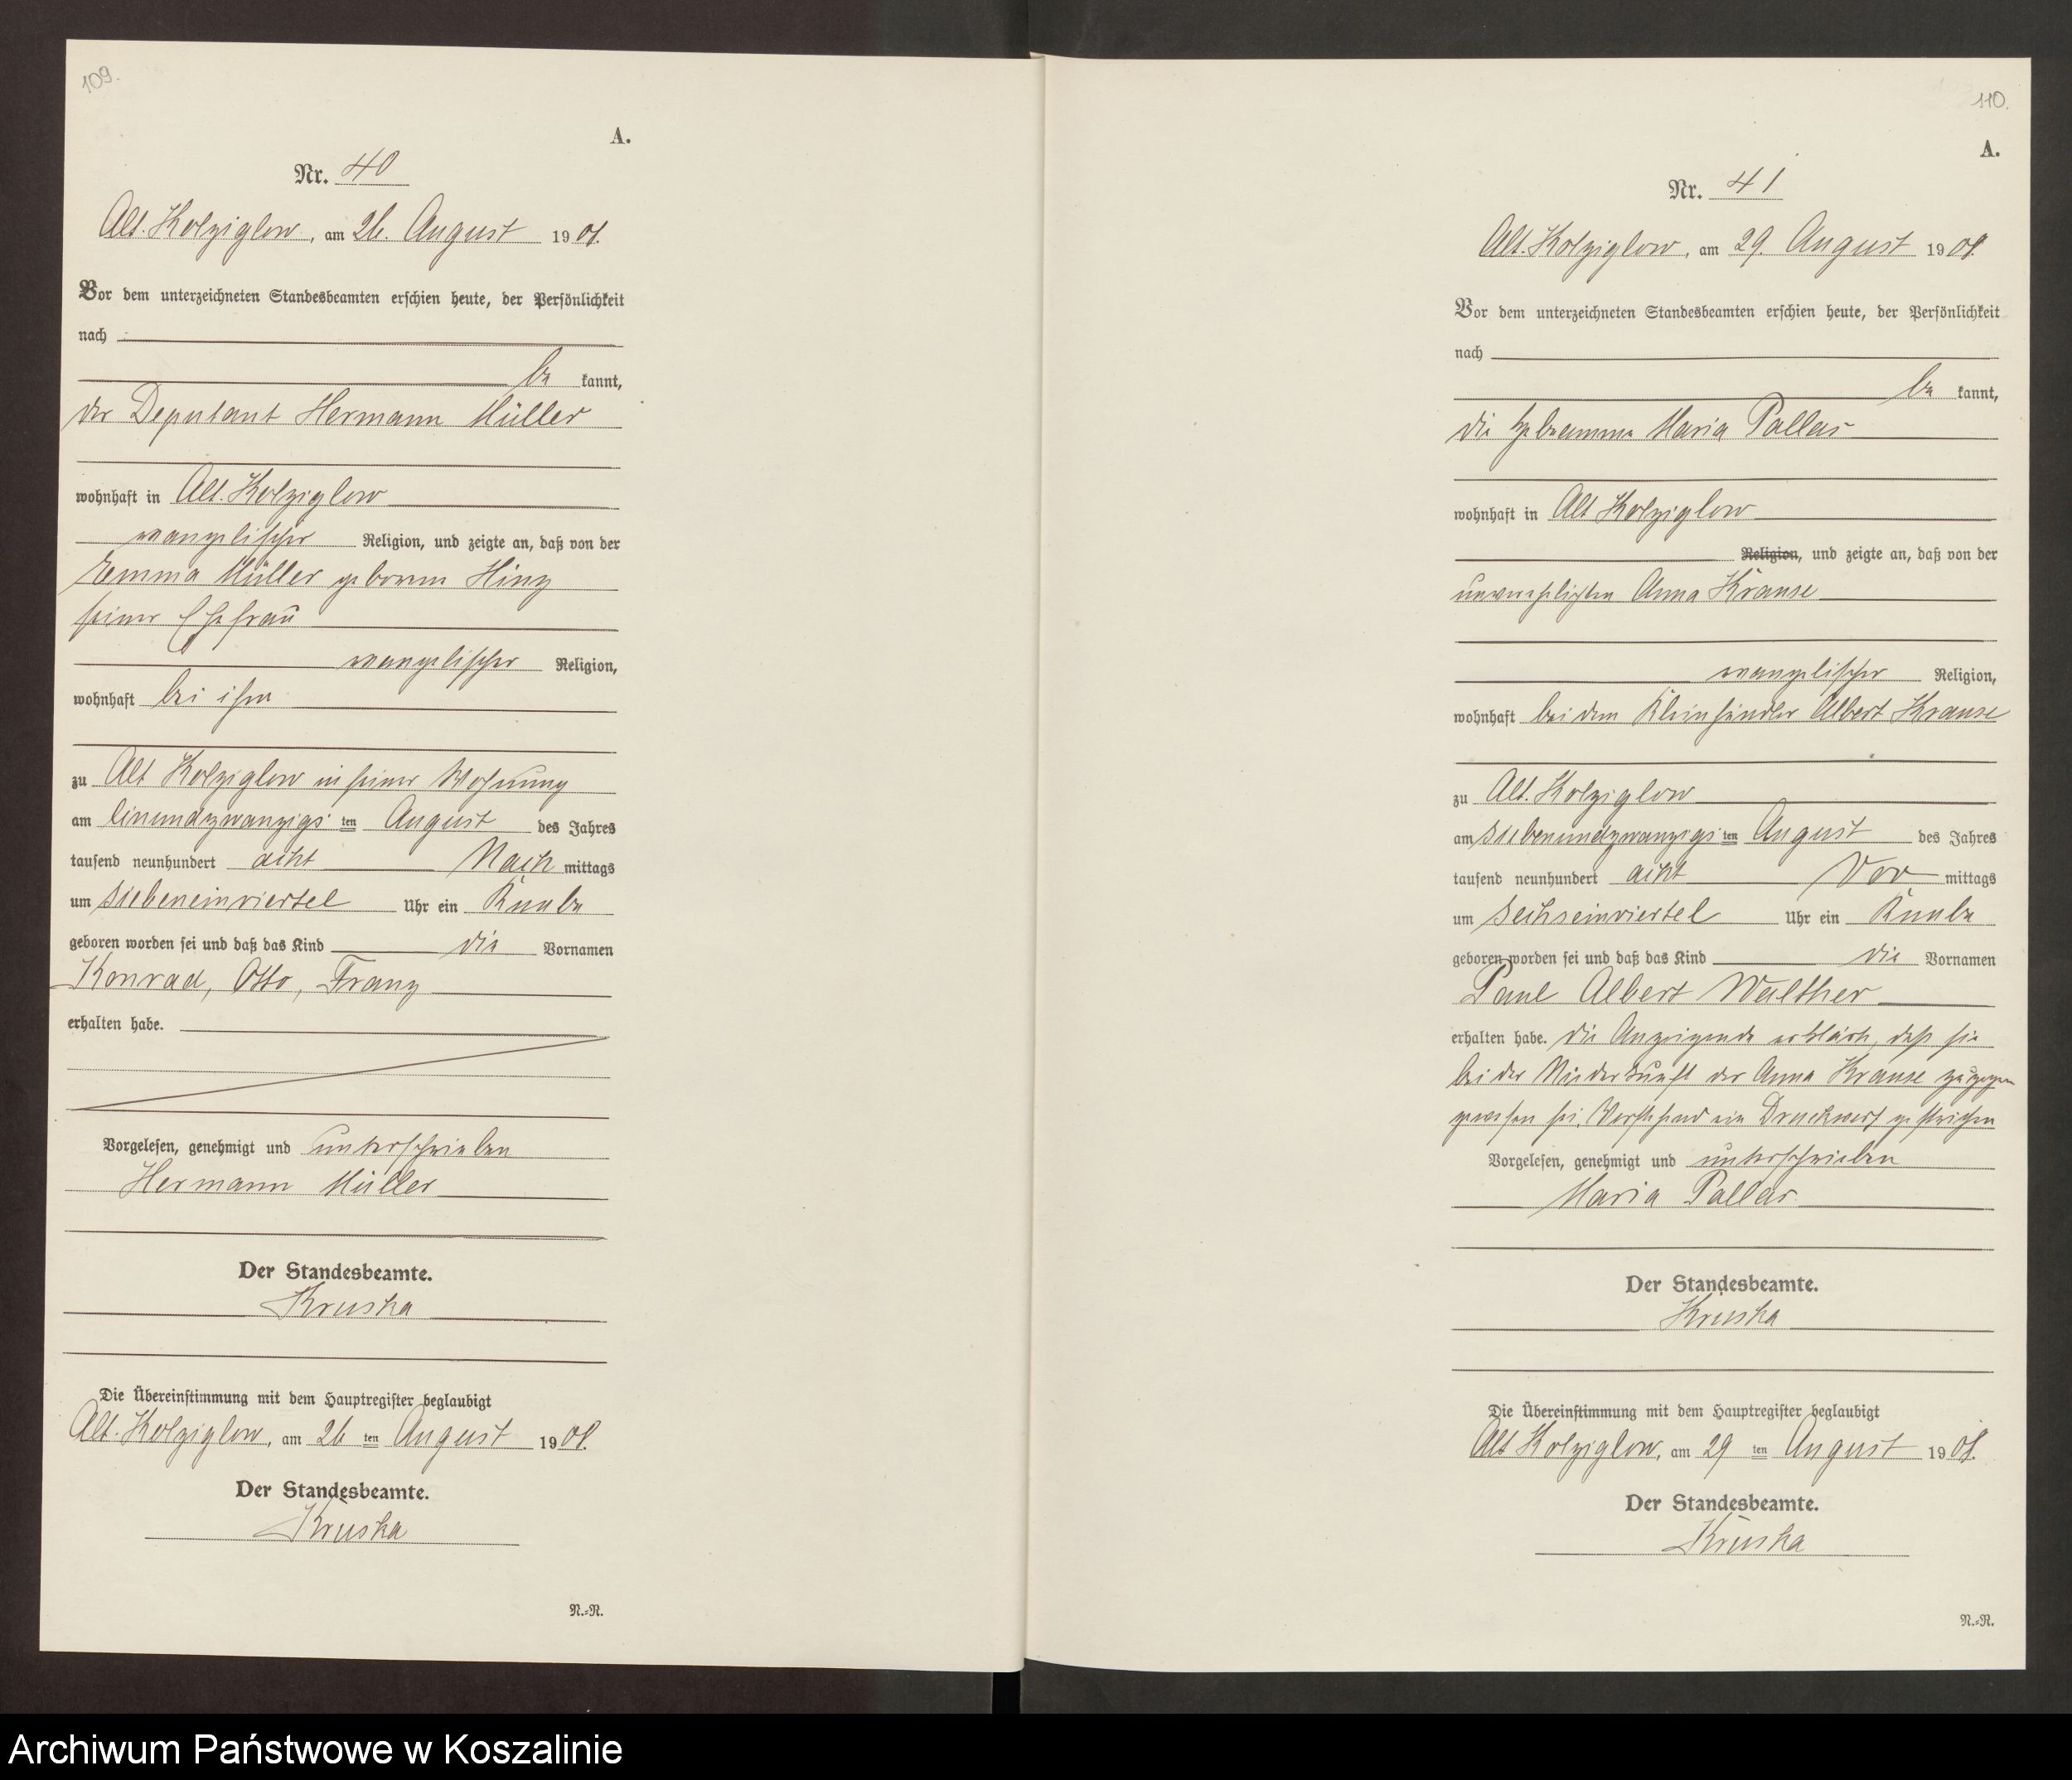 109.
A.
Nr. 40
Alt. Kolziglow, am 26. August 1908.
Vor dem unterzeichneten Standesbeamten erschien heute, der Persönlichkeit
nach
be kannt,
der Deputant Hermann Müller
wohnhaft in Alt. Kolziglow
evangelischer Religion, und zeigte an, daß von der
Emma Müller geborene Hinz
seiner Ehefrau
evangelischer Religion,
wohnhaft bei ihm
zu Alt Kolziglow in seiner Wohnung
am einundzwanzigs ten August des Jahres
tausend neunhundert acht Nach mittags
um siebeneinviertel Uhr ein Knabe
geboren worden sei und daß das Kind die Vornamen
Konrad, Otto, Franz
erhalten habe.
Vorgelesen, genehmigt und unterschrieben
Hermann Müller
Der Standesbeamte.
Kruska
Die Übereinstimmung mit dem Hauptregister beglaubigt
Alt. Kolziglow, am 26 ten August 1908.
Der Standesbeamte.
Kruska
N.=R.
110.
A.
Nr. 41
Alt. Kolziglow, am 29. August 1908
Vor dem unterzeichneten Standesbeamten erschien heute, der Persönlichkeit
nach
be kannt,
die Hebeamme Maria Pallas
wohnhaft in Alt Kolziglow
Religion, und zeigte an, daß von der
unverehelichten Anna Krause
evangelischer Religion,
wohnhaft bei dem Kleinhändler Albert Krause
zu Alt. Kolziglow
am siebenundzwanzigs ten August des Jahres
tausend neunhundert acht Vor mittags
um sechseinviertel Uhr ein Knabe
geboren worden sei und daß das Kind die Vornamen
Paul Albert Walther
erhalten habe. Die Anzeigende erklärte, daß sie
bei der Niederkunft der Anna Krause zugegen
gewesen sei. Vorstehend ein Druckwort gestrichen
Vorgelesen, genehmigt und unterschrieben
Maria Pallas.
Der Standesbeamte.
Kruska
Die Übereinstimmung mit dem Hauptregister beglaubigt
Alt Kolziglow, am 29 ten August 1908.
Der Standesbeamte.
Kruska
N.=R.
Archiwum Państwowe w Koszalinie